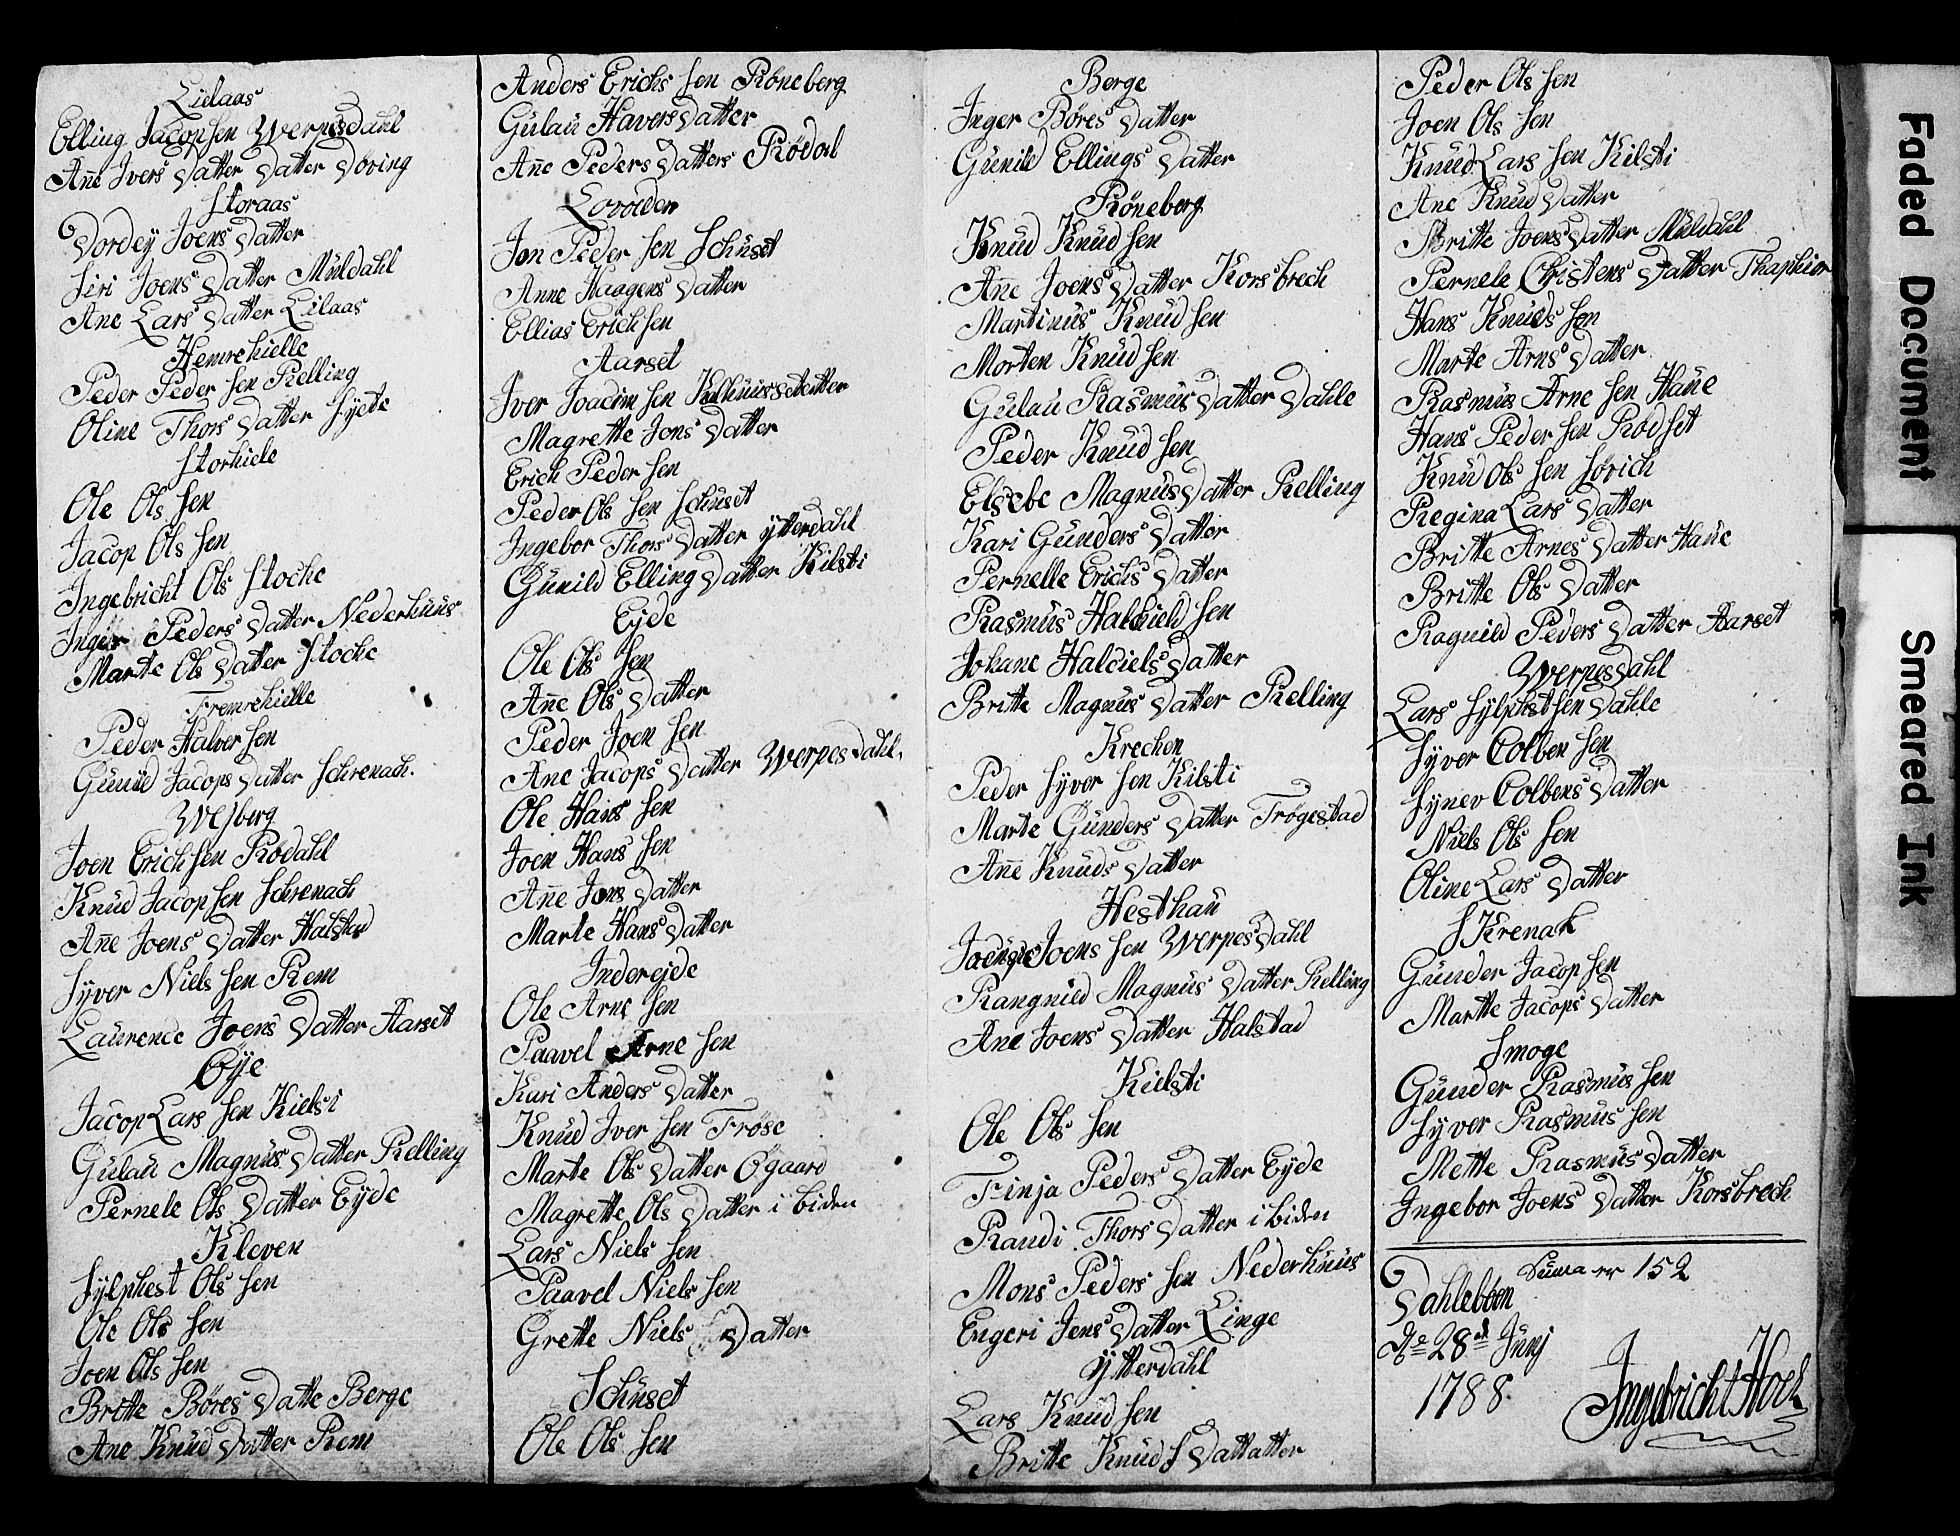 Lielaas
Elling Jacopsen Werpesdahl
Añe Ivers Datter Datter Døving
Storaas
Dordey Joens Datter
Siri Joens Datter Muldahl
Ane Lars Datter Lilaas
Hemrehielle
Peder Peder sen Relling
Oline Thors Datter Syede
Storhiele
Ole Ols sen
Jacop Ols sen
Ingebricht Ols Stoche
Inger Peders Datter Nederhuus
Marte Ols Datter Stoche
Fremrehielle
Peder Halver sen
Gunild Jacops Datter Schrenach.
Wesberg
Joen Erichsen Rodahl
Knud Jacopsen Schrenach
Añe Joens Datter Halstad
Syver Niels sen Rem
Laurence Joens Datter Aarset
Øye
Jacop Lars sen Kielsti
Gulau Magnus Datter Relling
Pernele Ols Datter Eyde
Kleven
Sylphest Ols sen
Ole Ols sen
Joen Ols sen
Britte Børes Datte Berge
Ane Knud Datter Rem
Anders Erichs sen Røneberg
Gulau Havers Datter
Añe Peders Datters Rødal
Lovoeden
Jon Peder sen Schuset
Anne Haagens Datter
Ellias Erichsen
Aarset
Iver Joacim sen
Magrette Jons Datter
Erich Peder sen
Peder Ols sen Schuset
Ingebor Thors Datter Ytterdahl
Gunild Elling Datter Kilsti
Eyde
Ole Ols sen
Añe Ols Datter
Peder Joen sen
Ane Jacops Datter Werpesdahl.
Ole Hans sen
Joen Hans sen
Añe Jons Datter
Marte Hans Datter
Inderejde
Ole Arne sen
Paavel Arne sen
Kari Anders Datter
Knud Iver sen Frøse
Marte Ols Datter Øgaard
Magrette Ols Datter i biden
Lars Niels sen
Paavel Niels sen
Grette Niels Datter
Schuset
Ole Ols sen
Berge
Inger Børes Datter
Gunild Ellings Datter
Røneberg
Knud Knud sen
Añe Joens Datter Korsbrech
Martinus Knud sen
Morten Knud sen
Gulau Rasmus Datter Dahle
Peder Knud sen
Elsebe Magnus Datter Relling
Kari Gunders Datter
Pernelle Erichs Datter
Rasmus Haldield sen
Johane Haldiels Datter
Britte Magnus Datter Relling
Krechen
Peder Syver sen Kilsti
Marte Gunders Datter Frøgestad
Añe Knuds Datter
Hesthau
Joens sen Werpesdahl
Rangnild Magnus Datter Relling
Ane Joens Datter Halstad
Kielsti
Ole Ols sen
Finja Peders Datter Eyde
Randi Thors Datter i biden
Mons Peders sen Nederhuus
Engeri Jens Datter Linge
Ytterdahl
Lars Knud sen
Britte Knud s Dattatter
Peder Ols sen
Joen Ols sen
Knud Lars sen Kilsti
Ane Knud Datter
Britte Joens Datter Muldahl
Pernele Christens Datter Thaphior
Hans Knuds son
Marte Arns Datter
Rasmus Arne sen Haue
Hans Peder sen Rødset
Knud Ols sen Sørich
Regina Lars Datter
Britte Arnes Datter Haue
Britte Ols Datter
Ragnild Peders Datter Aarset
Werpesdahl
Lars Sylphest sen Dahle
Syver Colben sen
Synev Colbens Datter
Niels Ols sen
Oline Lars Datter
SKrenak
Gunder Jacop sen
Martte Jacops Datter
Smoge
Gunder Rasmus sen
Syver Rasmus sen
Mette Rasmus Datter
Ingebor Joens Datter Korsbrech
Suma er 152
Dahleboen
28d Junj
1788.
Ingebricht Hoel
Faded Document
Smeared Ink